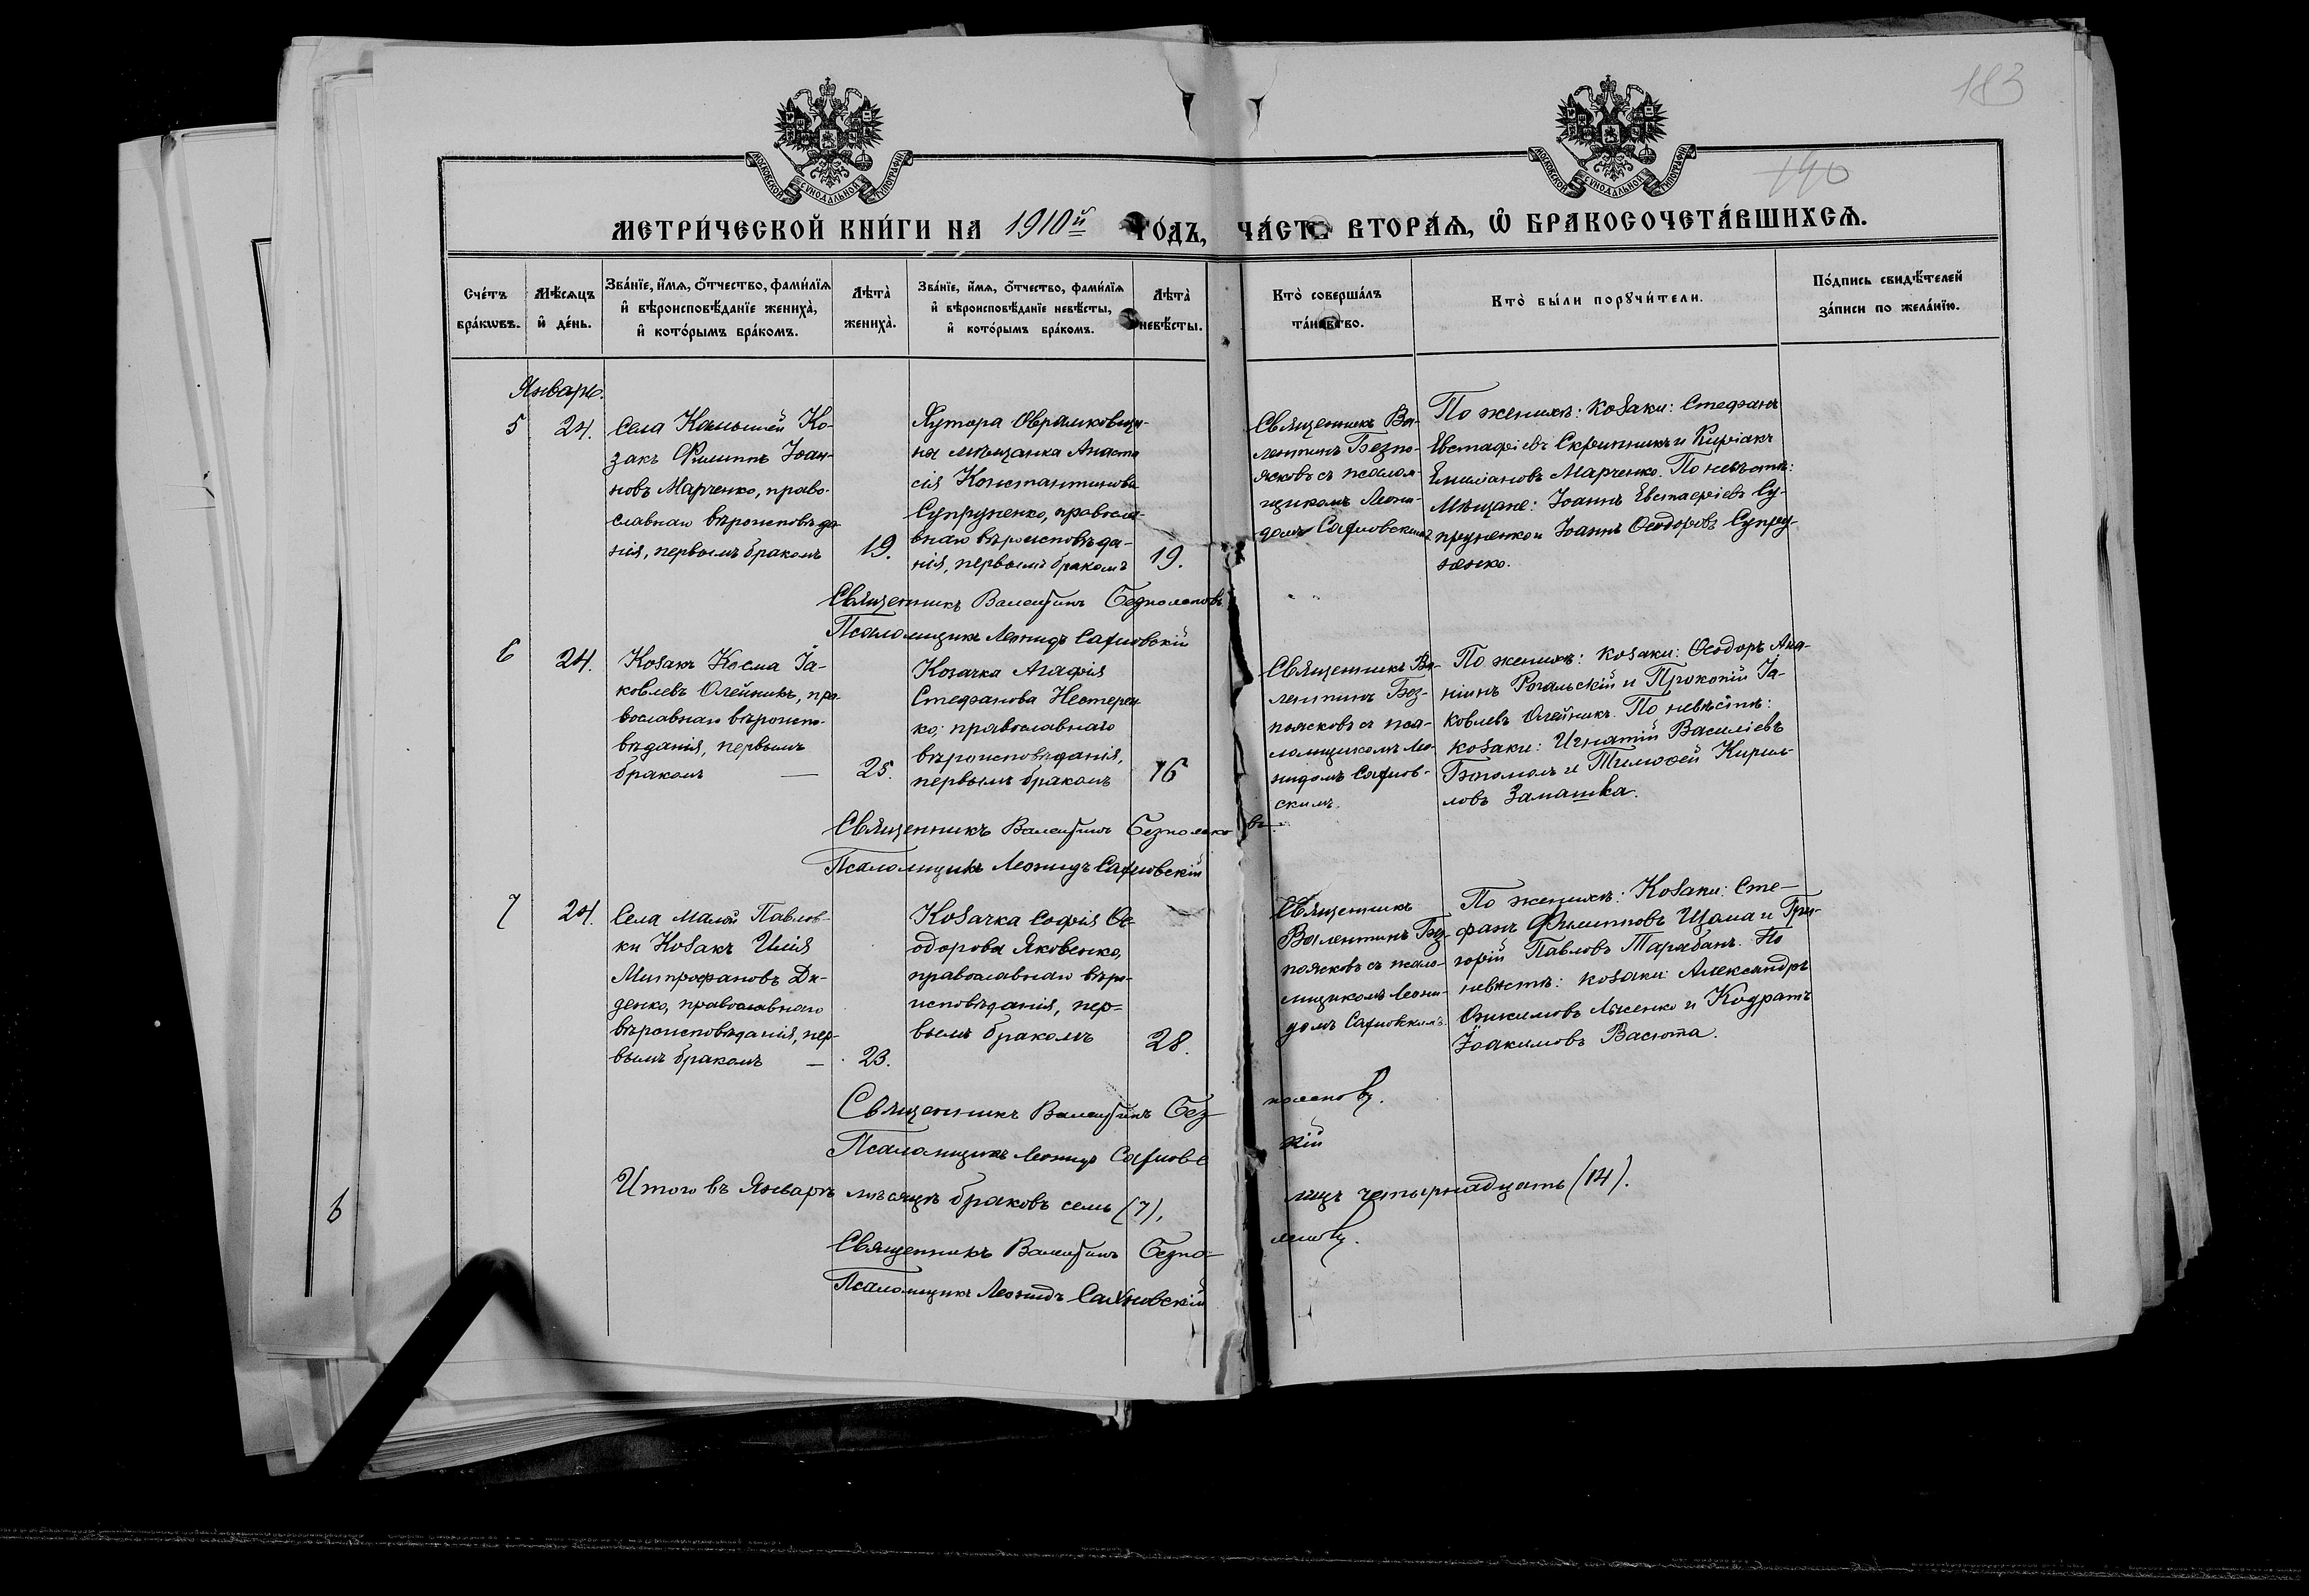 183
190
МОСКОВСКОЙ СѴНОДАЛЬНОЙ ТИПОГРАФІИ
МОСКОВСКОЙ СѴНОДАЛЬНОЙ ТИПОГРАФІИ
МЕТРИ́ЧЕСКОЙ КНИ́ГИ НА 1910й ГО́ДЪ, ЧА́СТЬ ВТОРА́Ѧ, Ѽ БРАКОСОЧЕТА́ВШИХСѦ.
Сче́тъ
бра́кѡвъ.
Мѣ́сѧцъ
и҆ де́нь.
Зва́нїе, и҆́мѧ, о҆́тчество, фами́лїѧ
и҆ вѣроисповѣ́данїе жениха̀,
и҆ кото́рымъ бра́комъ.
Лѣта̀
жениха̀.
Зва́нїе, и҆́мѧ, о҆́тчество, фами́лїѧ
и҆ вѣроисповѣ́данїе невѣ́сты,
и҆ кото́рымъ бра́комъ.
Лѣта̀
невѣ́сты.
Кто̀ соверша́лъ
та́инство.
Кто̀ бы́ли порꙋчи́тели.
По́дпись свидѣ́телей
за́писи по жела́нїю.
Январь.
5
24.
Села Комышей Ко-
закъ Филиппъ Іоан-
новъ Марченко, право-
славнаго вѣроисповѣда-
нія, первымъ бракомъ
19.
Хутора Аврамковщи-
ны мѣщанка Анаста
сія Константинова
Супруненко, правосла-
внаго вѣроисповѣда-
нія, первымъ бракомъ
19.
Священникъ Ва-
лентинъ Безпо-
ясковъ съ псалом-
щикомъ Леони-
домъ Сахновскимъ
По женихѣ: козаки: Стефанъ
Евстафіевъ Скрипникъ и Киріакъ
Емиліановъ Марченко. По невѣстѣ:
Мѣщане: Іоаннъ Евстафіевъ Су-
пруненко и Іоаннъ Ѳеодоровъ Супру-
ненко.
Священникъ Валентинъ Безпоясковъ
Псаломщикъ Леонидъ Сахновскій
6
24.
Козакъ Косма Іа-
ковлевъ Олейникъ, пра-
вославнаго вѣроиспо-
вѣданія, первымъ
бракомъ —
25.
Козачка Агафія
Стефанова Нестерен
ко, православнаго
вѣроисповѣданія,
первымъ бракомъ
16
Священникъ Ва-
лентинъ Без-
поясковъ съ пса-
ломщикомъ Лео-
нидомъ Сахнов-
скимъ.
По женихѣ: козаки: Ѳеодоръ Ана-
ніинъ Рогальскій и Прокопій Іа-
ковлевъ Олейникъ. По невѣстѣ:
козаки: Игнатій Василіевъ
Богомолъ и Тимоѳей Кирил-
ловъ Замашка.
Священникъ Валентинъ Безпоясковъ
Псаломщикъ Леонидъ Сахновскій
7
24.
Села Малой Павлов-
ки Козакъ Илія
Митрофановъ Ди-
денко, православнаго
вѣроисповѣданія, пер-
вымъ бракомъ —
23.
Козачка Софія Ѳе-
одорова Яковенко,
православнаго вѣро-
исповѣданія, пер-
вымъ бракомъ
28.
Священникъ
Валентинъ Без-
поясковъ съ псало-
мщикомъ Леони-
домъ Сахновскимъ.
По женихѣ: Козаки: Сте-
фанъ Филипповъ Щома и Гри-
горій Павловъ Тарабанъ. По
невѣстѣ: козаки: Александръ
Онисимовъ Лысенко и Кодратъ
Іоакимовъ Васюта.
Священникъ Валентинъ Безпоясковъ.
Псаломщикъ Леонидъ Сахновскій
Итого въ Январѣ мѣсяцѣ браковъ семь (7), лицъ четырнадцать (14).
Священникъ Валентинъ Безпоясковъ.
Псаломщикъ Леонидъ Сахновскій